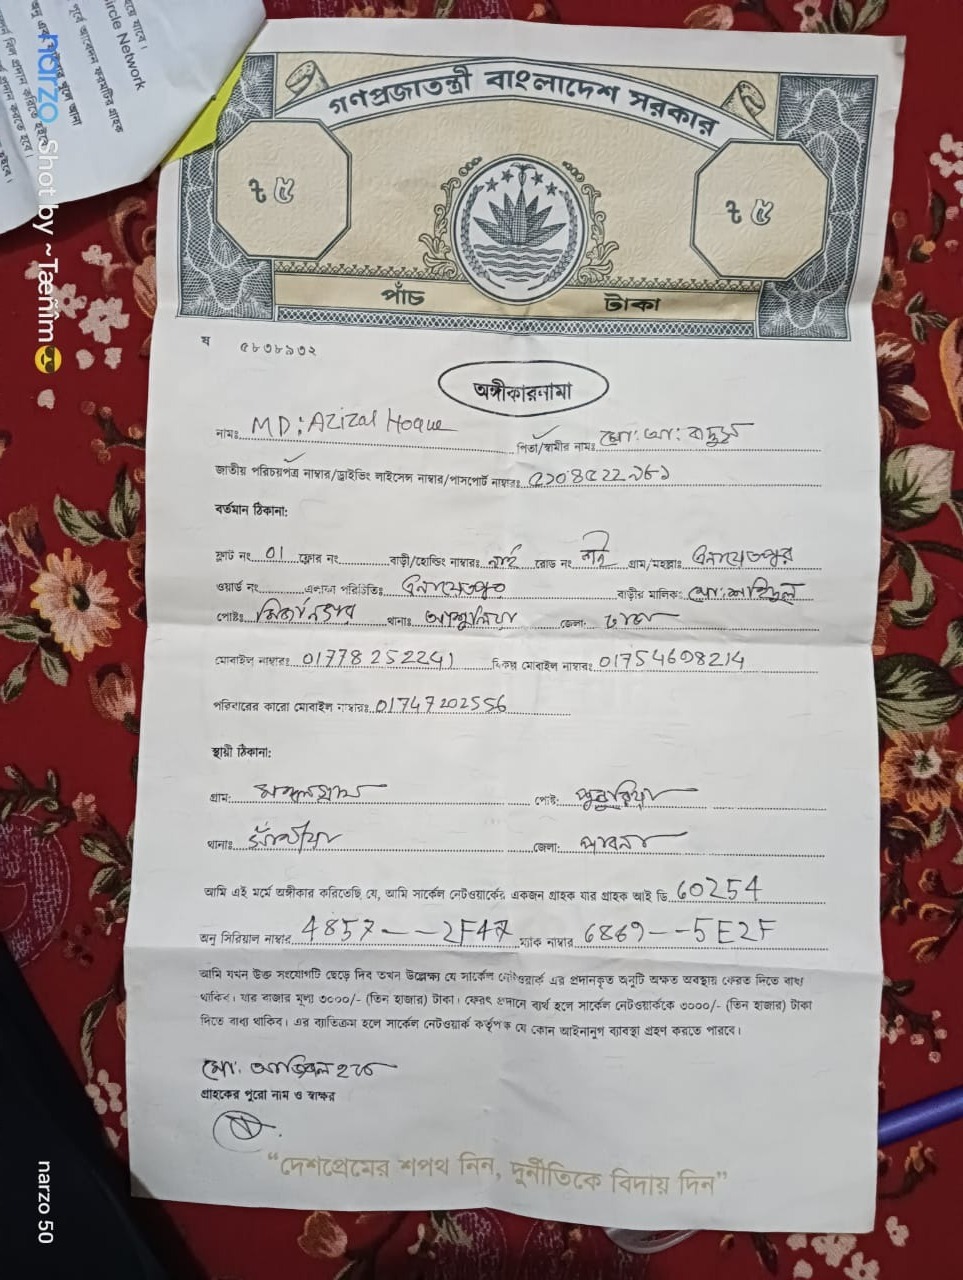 গণপ্রজাতন্ত্রী বাংলাদেশ সরকার
৳ ৫ ৳ ৫
পাঁচ টাকা
ষ ৫৮৩৮৯৩২
অঙ্গীকারনামা
নামঃ MD: Azizal Hoque পিতা/স্বামীর নামঃ মো: আ:
জাতীয় পরিচয়পত্র নাম্বার/ড্রাইভিং লাইসেন্স নাম্বার/পাসপোর্ট নাম্বারঃ
বর্তমান ঠিকানা:
ফ্লাট নং 01 ফ্লোর নং বাড়ী/হোল্ডিং নাম্বারঃ নাই রোড নং নাই গ্রাম/মহল্লাঃ এনায়েতপুর
ওয়ার্ড নং এলাকা পরিচিতিঃ এনায়েতপুর বাড়ীর মালিক: মো:
পোষ্টঃ মির্জানগর থানাঃ আশুলিয়া জেলা: ঢাকা
মোবাইল নাম্বারঃ 01778252241 বিকল্প মোবাইল নাম্বারঃ 01754698214
পরিবারের কারো মোবাইল নাম্বারঃ 01747202556
স্থায়ী ঠিকানা:
গ্রাম: পোষ্ট:
থানাঃ সাঁথীয়া জেলা: পাবনা
আমি এই মর্মে অঙ্গীকার করিতেছি যে, আমি সার্কেল নেটওয়ার্কের একজন গ্রাহক যার গ্রাহক আই ডি 60254
অনু সিরিয়াল নাম্বার 4857--2F47 ম্যাক নাম্বার 6869--5E2F
আমি যখন উক্ত সংযোগটি ছেড়ে দিব তখন উল্লেখ্য যে সার্কেল নেটওয়ার্ক এর প্রদানকৃত অনুটি অক্ষত অবস্থায় ফেরত দিতে বাধ্য
থাকিব। যার বাজার মূল্য ৩০০০/- (তিন হাজার) টাকা। ফেরৎ প্রদানে ব্যর্থ হলে সার্কেল নেটওয়ার্ককে ৩০০০/- (তিন হাজার) টাকা
দিতে বাধ্য থাকিব। এর ব্যতিক্রম হলে সার্কেল নেটওয়ার্ক কর্তৃপক্ষ যে কোন আইনানুগ ব্যাবস্থা গ্রহণ করতে পারবে।
মো: আজিজল হক
গ্রাহকের পুরো নাম ও স্বাক্ষর
“দেশপ্রেমের শপথ নিন, দুর্নীতিকে বিদায় দিন”
narzo Shot by ~Tæñîm😎
narzo 50
ircle Network